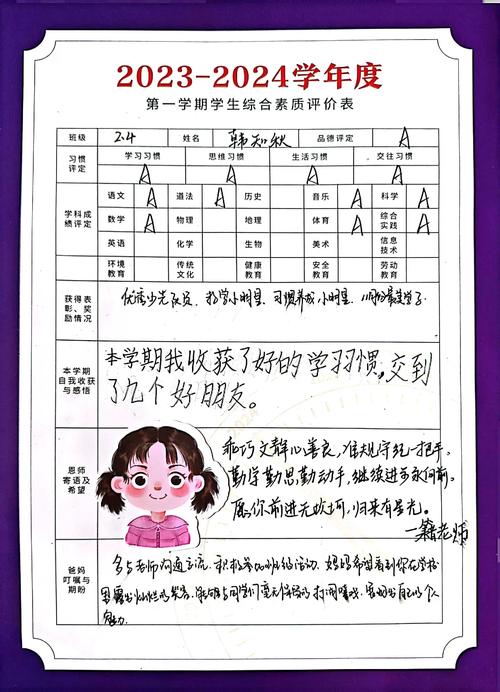 2023-2024学年度
第一学期学生综合素质评价表
班级 2.4 姓名 韩知秋 品德评定 A
习惯评定 学习习惯 思维习惯 生活习惯 交往习惯
A A A A
学科成绩评定 语文 A 道法 A 历史 音乐 A 科学 A
数学 A 物理 地理 体育 A 综合实践 A
英语 化学 生物 美术 信息技术
环境教育 传统文化 健康教育 安全教育 劳动教育
获得表彰、奖励情况
优秀少先队员, 数学小明星, 习惯养成小明星,
本学期自我收获与感悟
本学期我收获了好的学习习惯,交到
了几个好朋友。
恩师寄语及希望
乖巧文静心善良,准规守纪一把手。
勤学勤思勤动手,继续进步永向前。
愿你前进无坎坷,归来有星光。
一籍老师
爸妈叮嘱与期盼
多与老师沟通交流,积极参加班级活动,妈妈希望看到你在学校